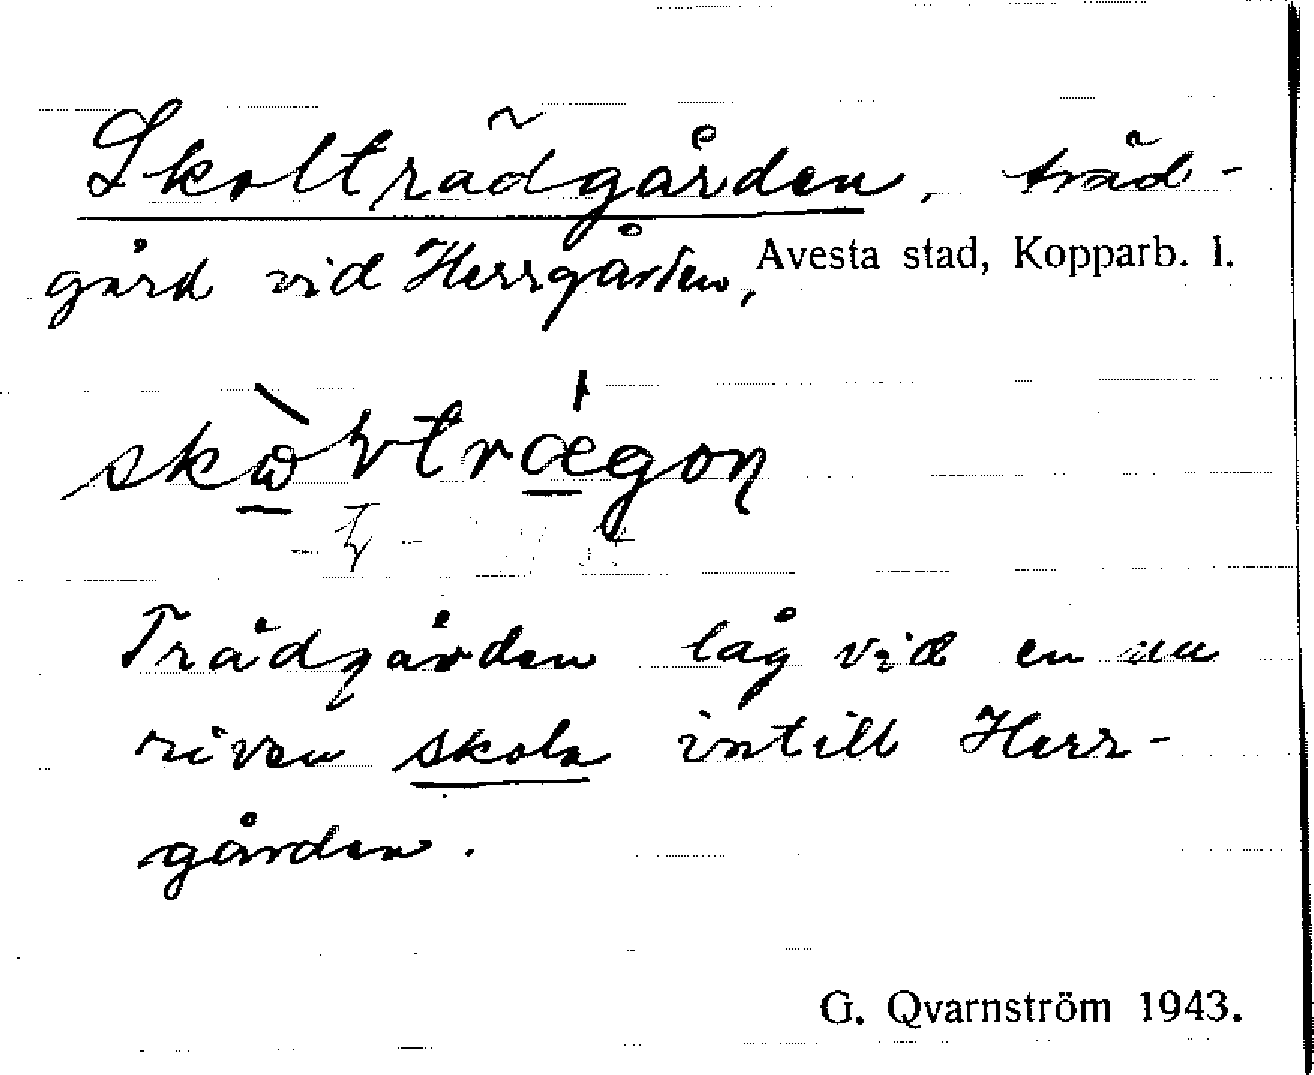 Skolträdgården, träd-
gård vid Herrgården, Avesta stad, Kopparb. l.
Trädgården låg vid en nu
riven skola intill Herr-
gården.
G. Qvarnström 1943.